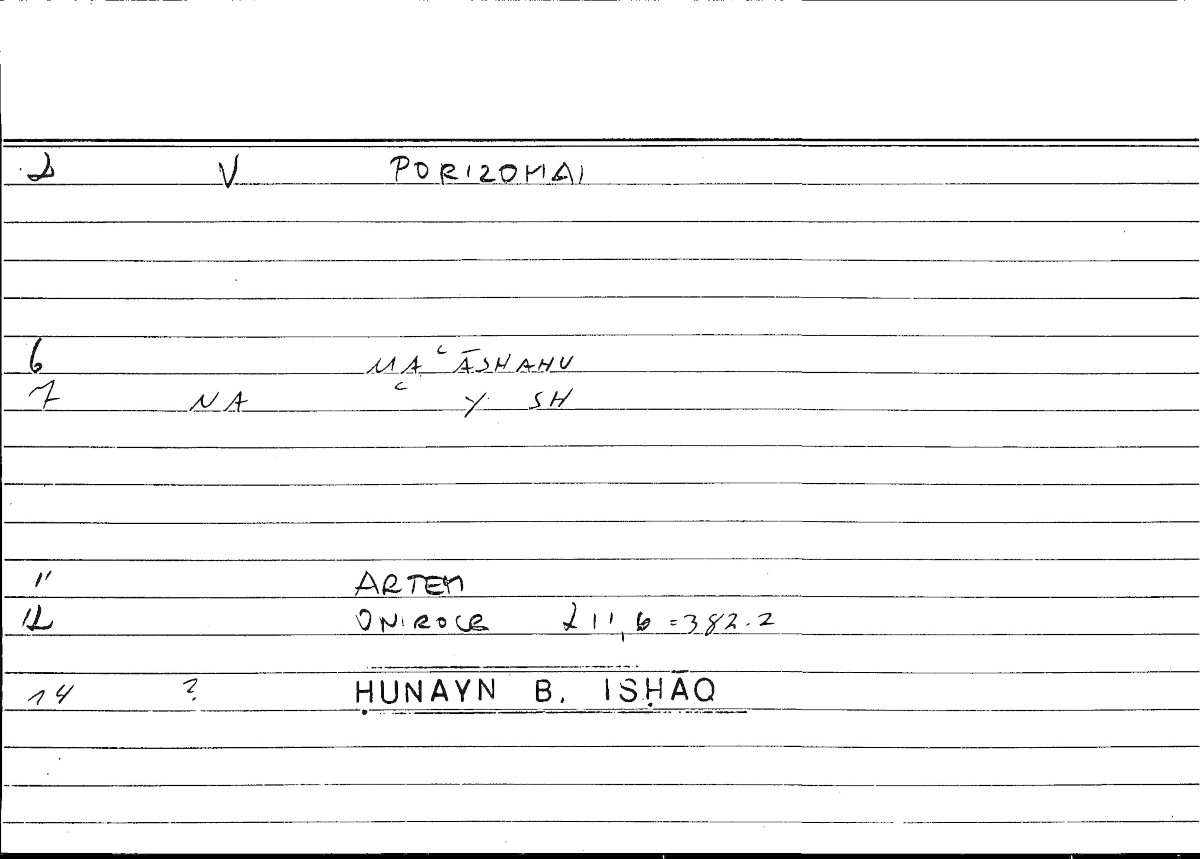 2 V PORIZOMAI
6 MAʿĀSHAHU
7 NA ʿ Y SH
11 ARTEM
12 ONIROCR 211,6 =382.2
14 ? ḤUNAYN B. ISḤĀQ